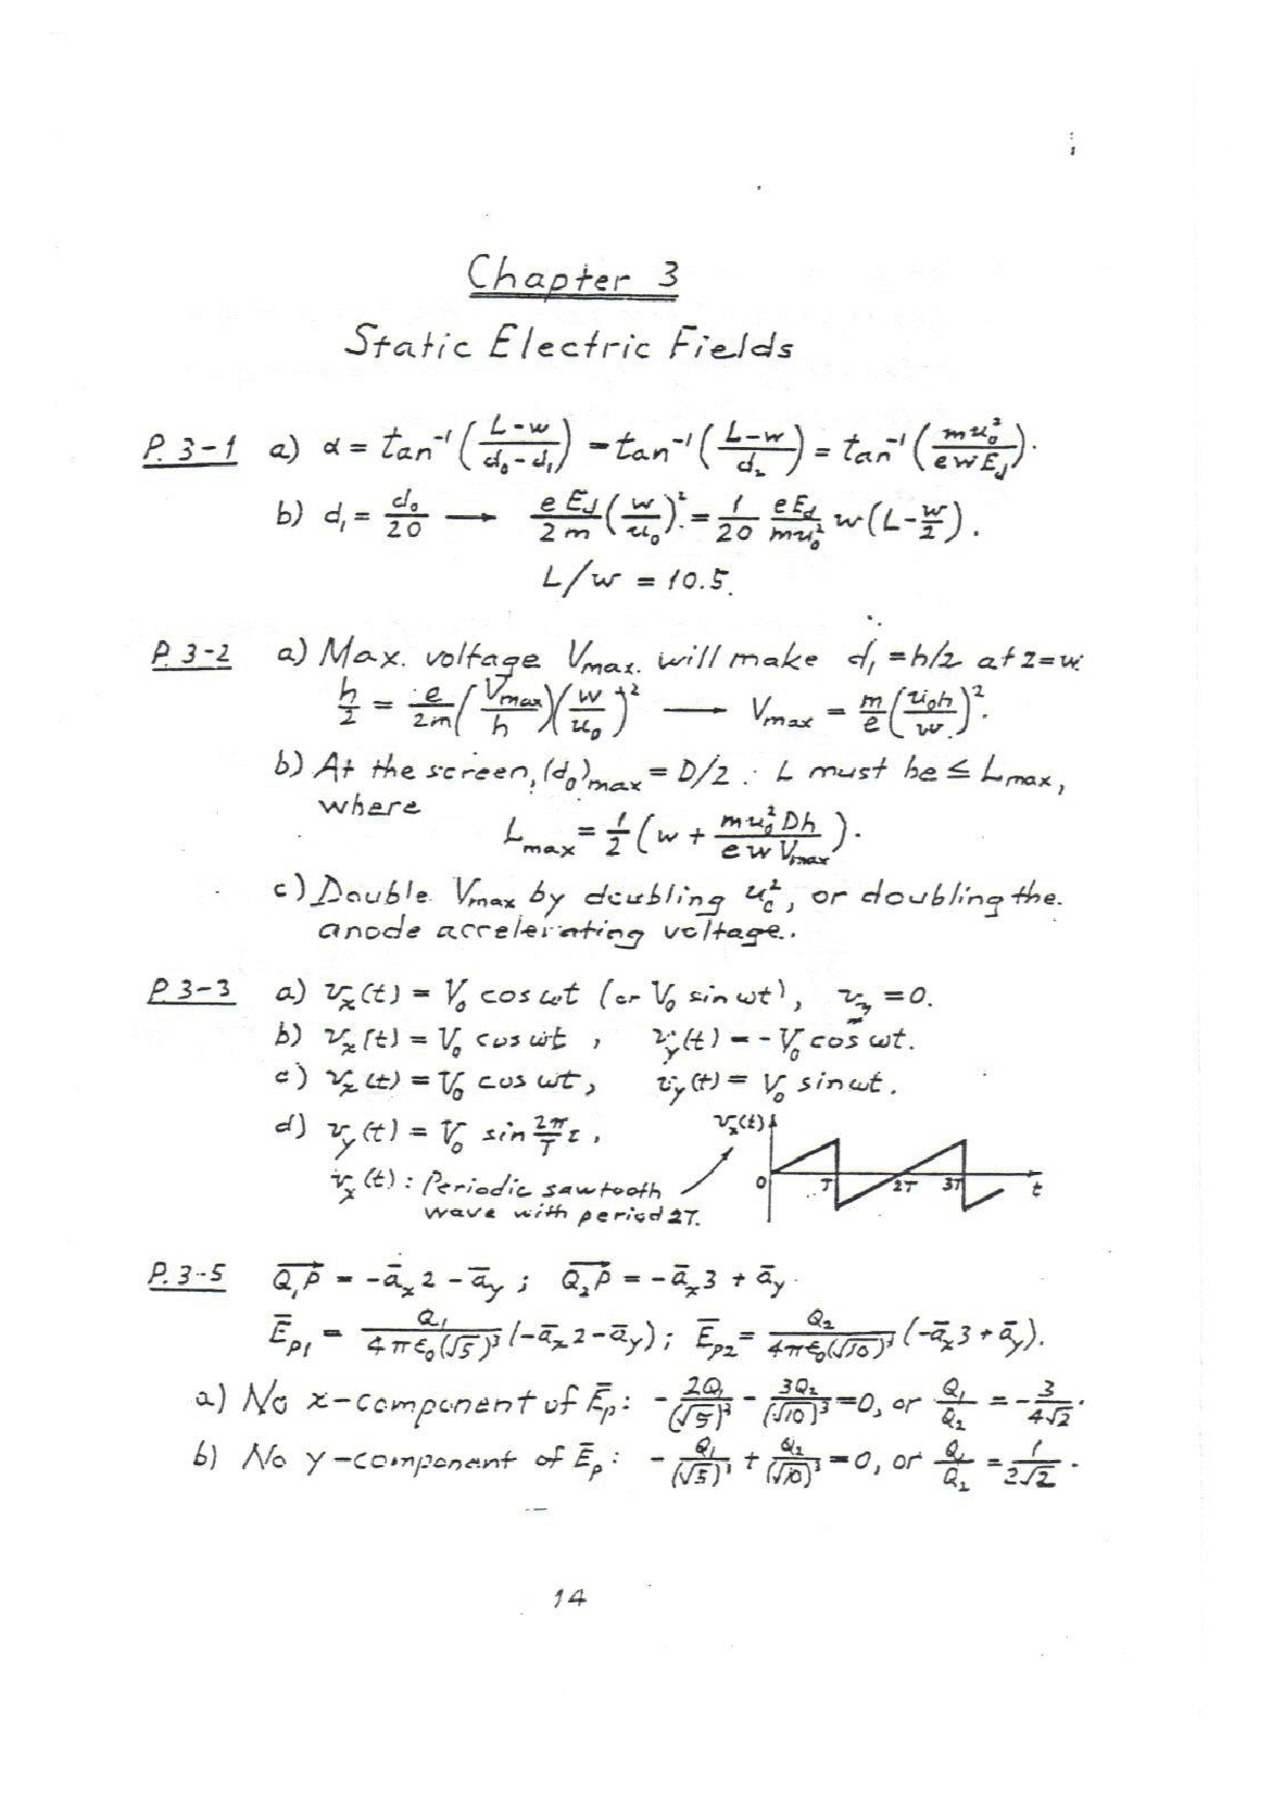 Chapter 3
Static Electric Fields
P. 3-1 a) α = tan⁻¹((L-w)/(d₀-d₁)) = tan⁻¹((L-w)/d₂) = tan⁻¹(mu₀²/(ewE_d)).
b) d₁ = d₀/20 ⟶ (eE_d/2m)(w/u₀)² = (1/20)(eE_d/mu₀²) w(L-w/2).
L/w = 10.5.
P. 3-2 a) Max. voltage Vmax. will make d₁ = h/2 at z = w
h/2 = (e/2m)(Vmax/h)(w/u₀)² ⟶ Vmax = (m/e)(u₀h/w)².
b) At the screen, (d₀)max = D/2. L must be ≤ Lmax,
where
Lmax = ½(w + mu₀²Dh/(ewVmax)).
c) Double Vmax by doubling u₀², or doubling the
anode accelerating voltage.
P. 3-3 a) vₓ(t) = V₀ cos ωt (or V₀ sin ωt), v_y = 0.
b) vₓ(t) = V₀ cos ωt, v_y(t) = -V₀ cos ωt.
c) vₓ(t) = V₀ cos ωt, v_y(t) = V₀ sin ωt.
d) v_y(t) = V₀ sin (2π/T)t, vₓ(t)
vₓ(t): Periodic sawtooth 0 T 2T 3T t
wave with period 2T.
P. 3-5 Q₁P = -āₓ2 - ā_y; Q₂P = -āₓ3 + ā_y.
Ē_P1 = Q₁/(4πε₀(√5)³) (-āₓ2 - ā_y); Ē_P2 = Q₂/(4πε₀(√10)³) (-āₓ3 + ā_y).
a) No x-component of Ē_P: -2Q₁/(√5)³ - 3Q₂/(√10)³ = 0, or Q₁/Q₂ = -3/(4√2).
b) No y-component of Ē_P: -Q₁/(√5)³ + Q₂/(√10)³ = 0, or Q₁/Q₂ = 1/(2√2).
14